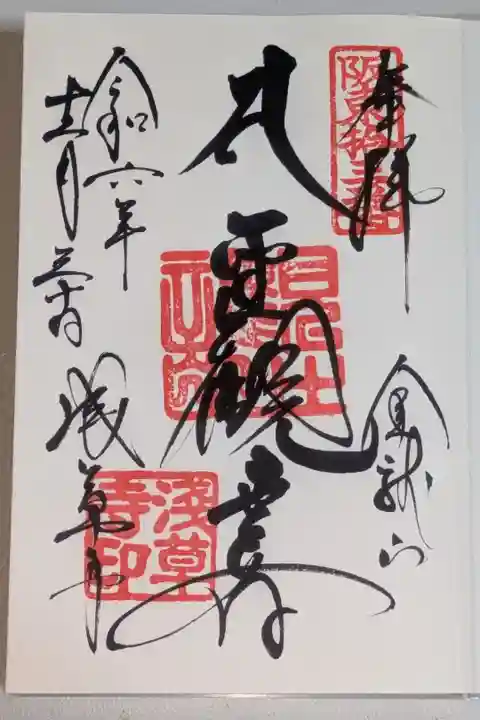 奉拝
阪東拾三番
金龍山
聖観世音
令和六年
十一月三十日
浅草寺
淺草寺印